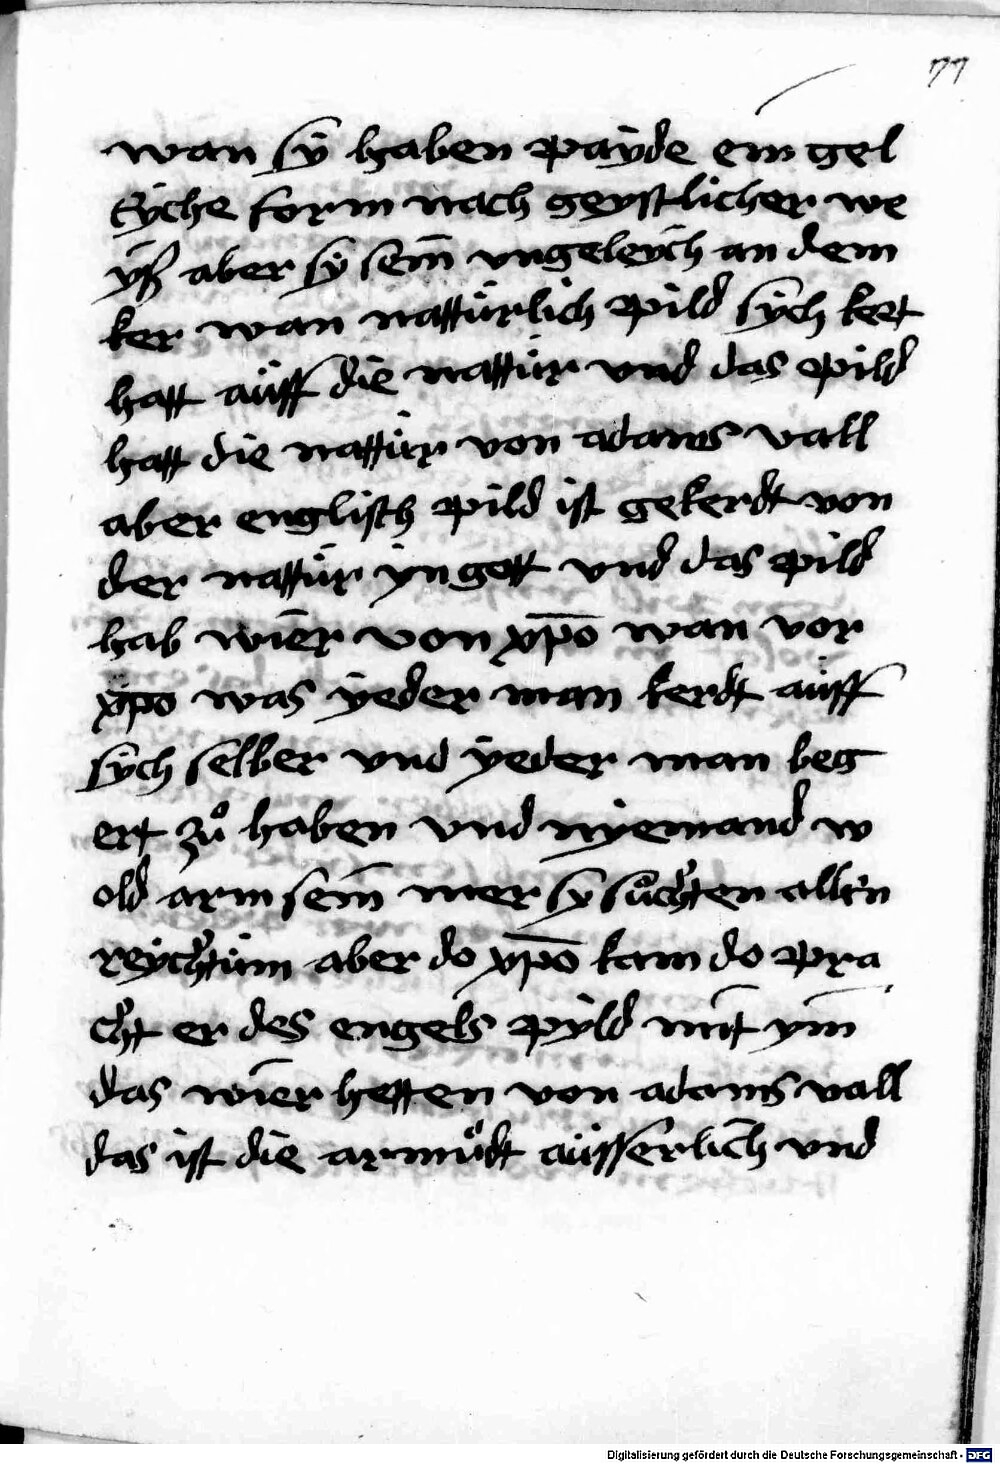 77
wan sÿ haben paÿde ein gel
eÿche form nach geystlicher we
ÿß aber sÿ sein̄ vngeleych an dem
ker wan nattürlich pild sÿch kert
hatt aüff die nattür vnd das pild
hatt die nattür von adams vall
aber englisch pild ist gekerdt von
der nattür ÿn gott vnd das pild
hab wier von xp̄o wan vor
xp̄o was ÿeder man kerdt aüff
sÿch selber vnd ÿeder man beg
ert zuͦ haben vnd nÿemand w
old arm sein̄ mer sÿ suͦchten
reÿchtüm aber do xp̄o kam do pra
cht er des engels pÿld mit ÿm̄
das wier hetten von adams vall
das ist die armuͦdt aüsserlich vnd
Digitalisierung gefördert durch die Deutsche Forschungsgemeinschaft - DFG